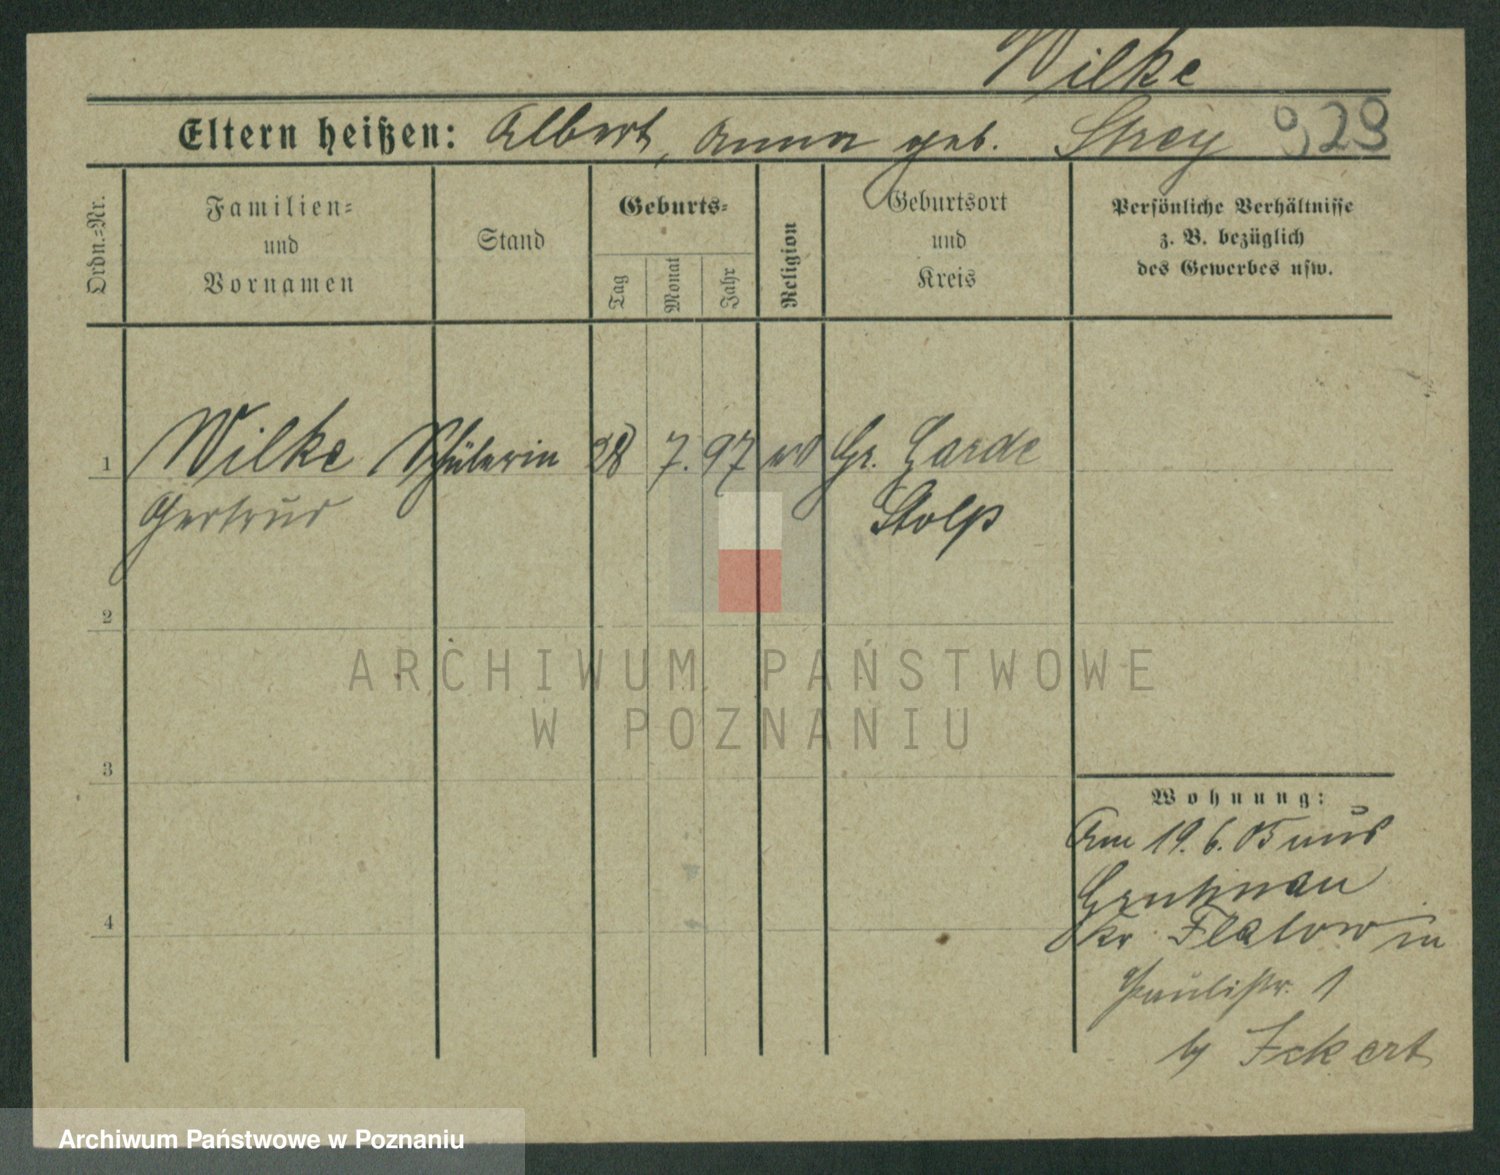 Wilke
Eltern heißen: Albert, Anna geb. Strey 929
Ordn.-Nr.
Familien- und Vornamen
Stand
Geburts-
Tag
Monat
Jahr
Religion
Geburtsort und Kreis
Persönliche Verhältnisse
z. B. bezüglich
des Gewerbes usw.
1 Wilke Schülerin 28 7. 97 ev Gr. Garde
Gertrud Stolp
2
ARCHIWUM PAŃSTWOWE
W POZNANIU
3
Wohnung:
Am 19. 6. 05 aus
4
Kr Flatow in
Paulistr. 1
by Eckert
Archiwum Państwowe w Poznaniu